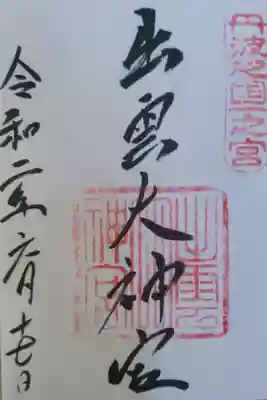 丹波國一之宮
出雲大神宮
令和二年六月十七日